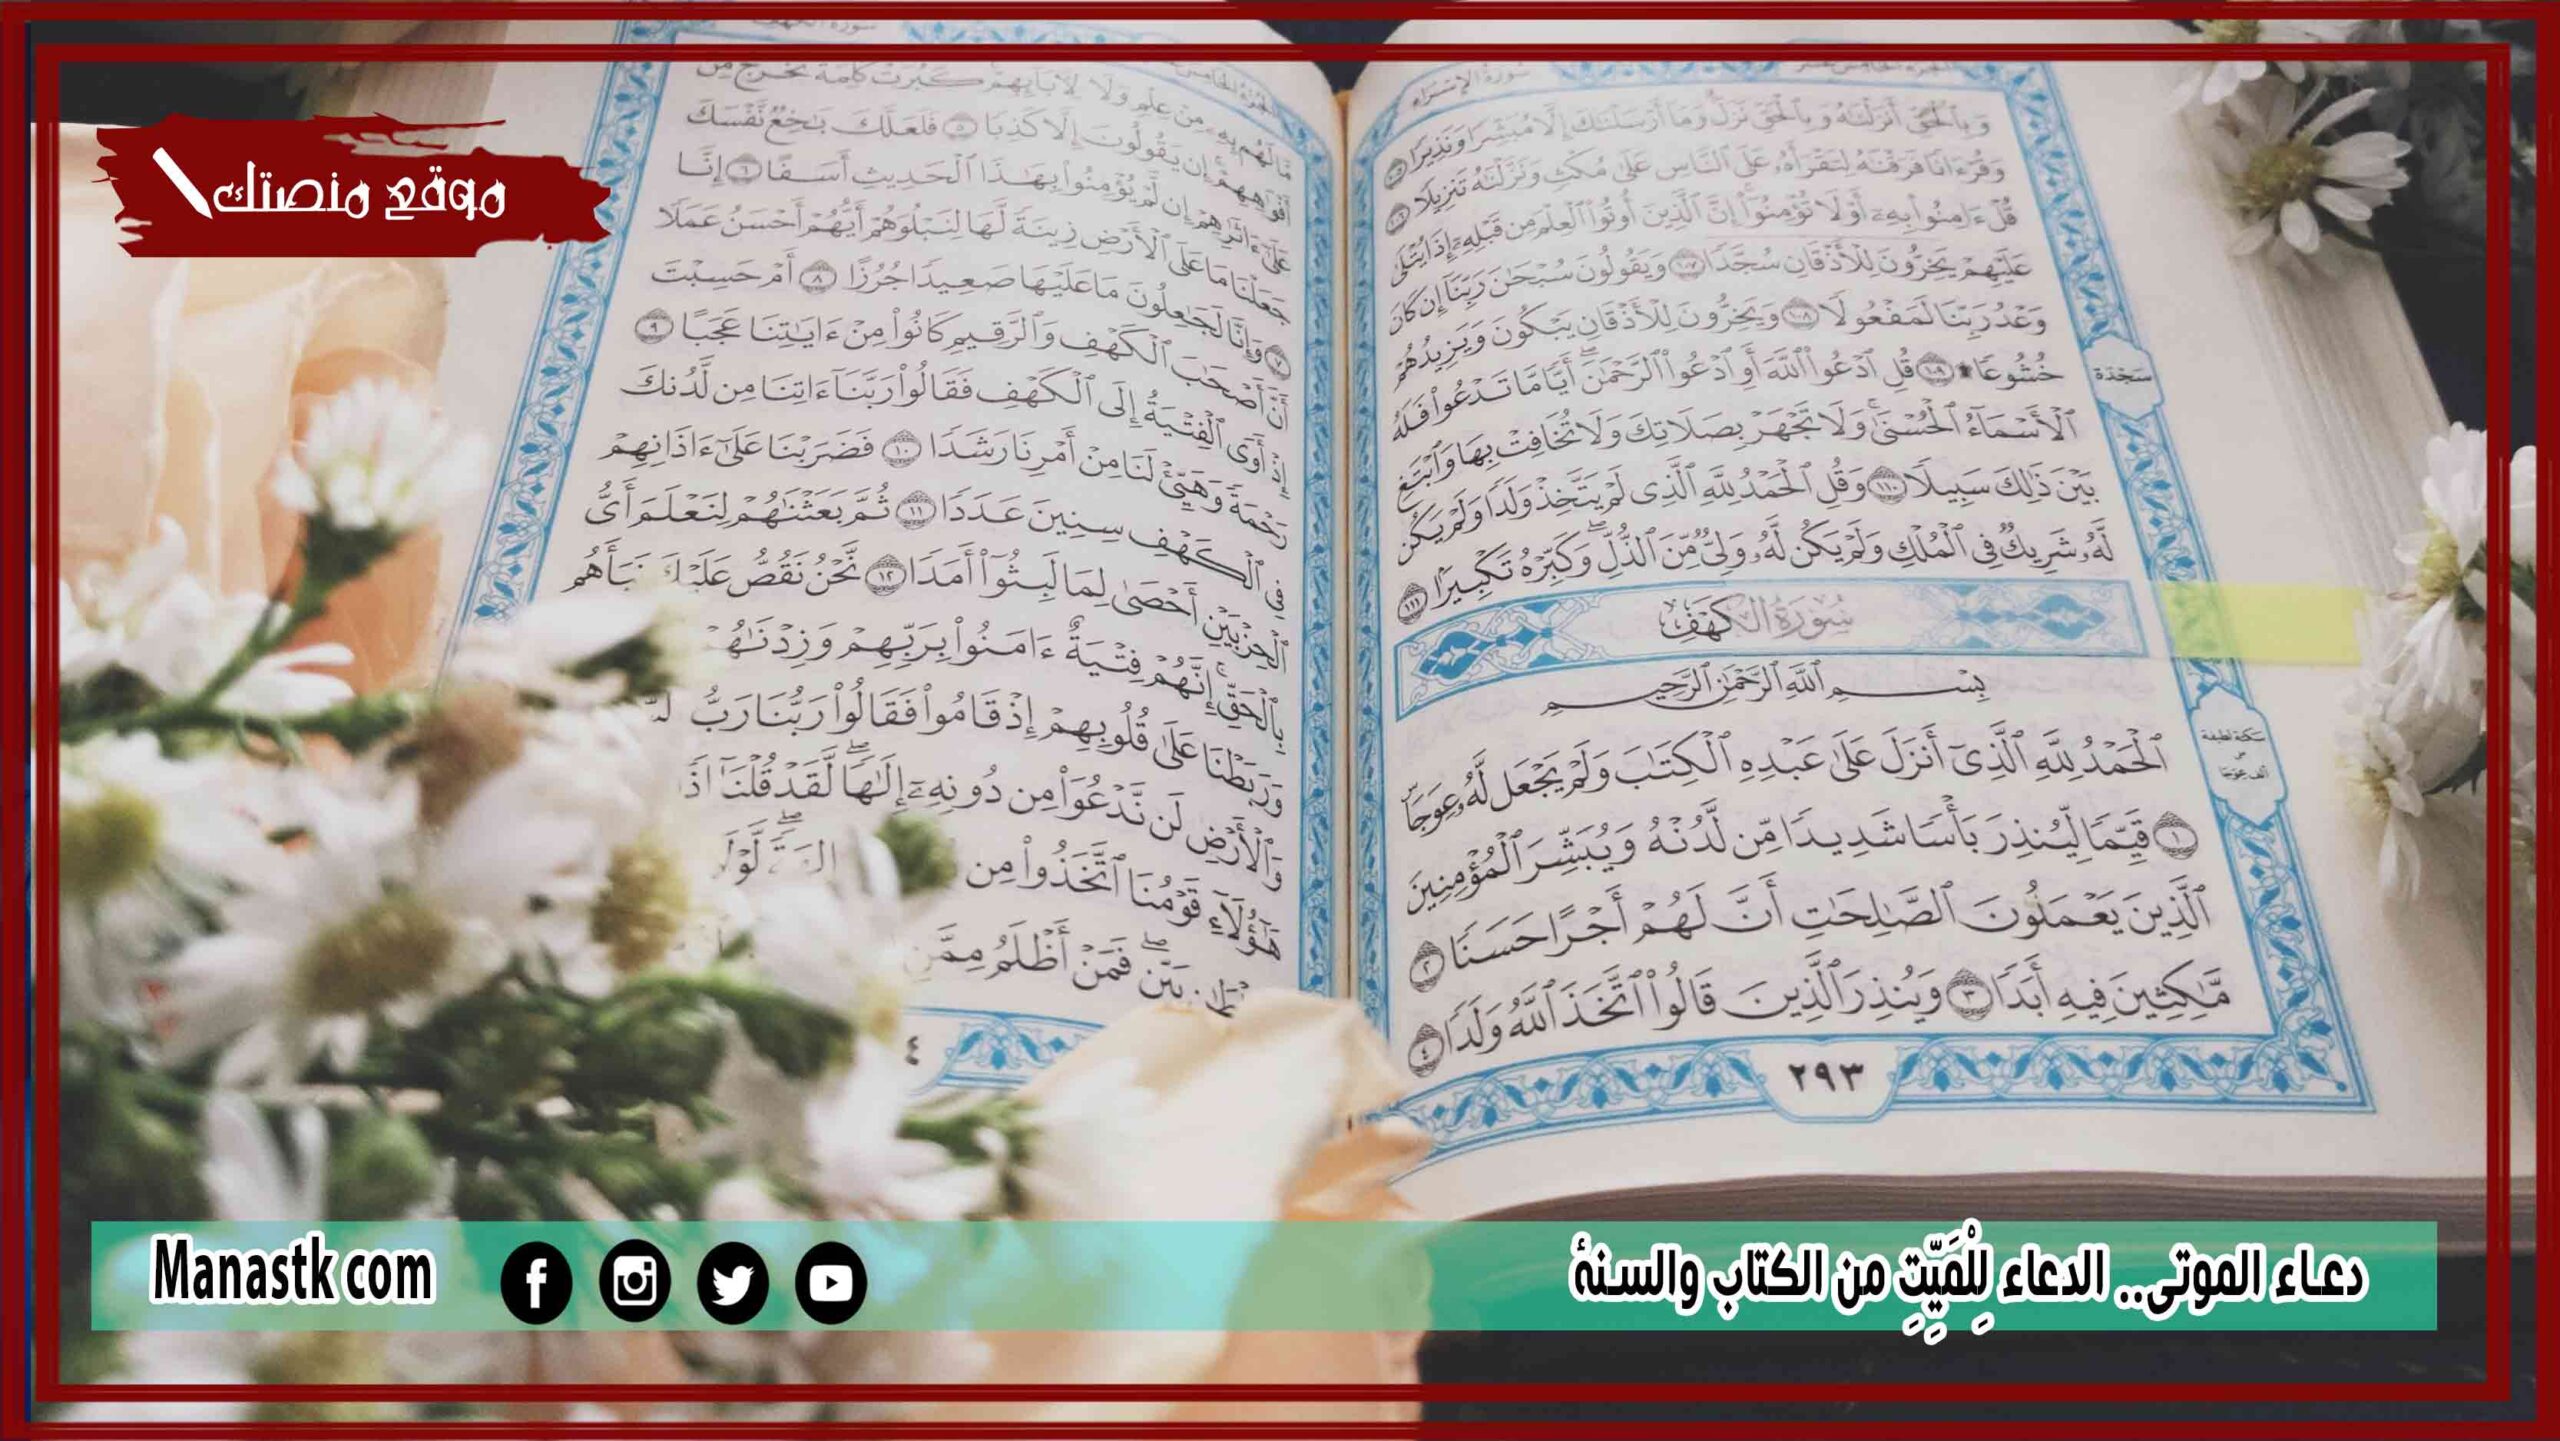 موقع منصتك
سورة الإسراء
وَبِٱلْحَقِّ أَنزَلْنَٰهُ وَبِٱلْحَقِّ نَزَلَ وَمَآ أَرْسَلْنَٰكَ إِلَّا مُبَشِّرًا وَنَذِيرًا ١٠٥
وَقُرْءَانًا فَرَقْنَٰهُ لِتَقْرَأَهُۥ عَلَى ٱلنَّاسِ عَلَىٰ مُكْثٍ وَنَزَّلْنَٰهُ تَنزِيلًا ١٠٦
قُلْ ءَامِنُوا۟ بِهِۦٓ أَوْ لَا تُؤْمِنُوٓا۟ إِنَّ ٱلَّذِينَ أُوتُوا۟ ٱلْعِلْمَ مِن قَبْلِهِۦٓ إِذَا يُتْلَىٰ
عَلَيْهِمْ يَخِرُّونَ لِلْأَذْقَانِ سُجَّدًا ١٠٧ وَيَقُولُونَ سُبْحَٰنَ رَبِّنَآ إِن كَانَ
وَعْدُ رَبِّنَا لَمَفْعُولًا ١٠٨ وَيَخِرُّونَ لِلْأَذْقَانِ يَبْكُونَ وَيَزِيدُهُمْ
خُشُوعًا ١٠٩ قُلِ ٱدْعُوا۟ ٱللَّهَ أَوِ ٱدْعُوا۟ ٱلرَّحْمَٰنَ أَيًّا مَّا تَدْعُوا۟ فَلَهُ
سَجْدَة
ٱلْأَسْمَآءُ ٱلْحُسْنَىٰ وَلَا تَجْهَرْ بِصَلَاتِكَ وَلَا تُخَافِتْ بِهَا وَٱبْتَغِ
بَيْنَ ذَٰلِكَ سَبِيلًا ١١٠ وَقُلِ ٱلْحَمْدُ لِلَّهِ ٱلَّذِى لَمْ يَتَّخِذْ وَلَدًا وَلَمْ يَكُن
لَّهُۥ شَرِيكٌ فِى ٱلْمُلْكِ وَلَمْ يَكُن لَّهُۥ وَلِىٌّ مِّنَ ٱلذُّلِّ وَكَبِّرْهُ تَكْبِيرًا ١١١
سُورَةُ الكَهْفِ
بِسْمِ ٱللَّهِ ٱلرَّحْمَٰنِ ٱلرَّحِيمِ
ٱلْحَمْدُ لِلَّهِ ٱلَّذِىٓ أَنزَلَ عَلَىٰ عَبْدِهِ ٱلْكِتَٰبَ وَلَمْ يَجْعَل لَّهُۥ عِوَجَا
سكتة لطيفة
على
ألف عوجا
١ قَيِّمًا لِّيُنذِرَ بَأْسًا شَدِيدًا مِّن لَّدُنْهُ وَيُبَشِّرَ ٱلْمُؤْمِنِينَ
ٱلَّذِينَ يَعْمَلُونَ ٱلصَّٰلِحَٰتِ أَنَّ لَهُمْ أَجْرًا حَسَنًا ٢
مَّٰكِثِينَ فِيهِ أَبَدًا ٣ وَيُنذِرَ ٱلَّذِينَ قَالُوا۟ ٱتَّخَذَ ٱللَّهُ وَلَدًا ٤
٢٩٣
مَّا لَهُم بِهِۦ مِنْ عِلْمٍ وَلَا لِءَابَآئِهِمْ كَبُرَتْ كَلِمَةً تَخْرُجُ مِنْ
أَفْوَٰهِهِمْ إِن يَقُولُونَ إِلَّا كَذِبًا ٥ فَلَعَلَّكَ بَٰخِعٌ نَّفْسَكَ
عَلَىٰٓ ءَاثَٰرِهِمْ إِن لَّمْ يُؤْمِنُوا۟ بِهَٰذَا ٱلْحَدِيثِ أَسَفًا ٦ إِنَّا
جَعَلْنَا مَا عَلَى ٱلْأَرْضِ زِينَةً لَّهَا لِنَبْلُوَهُمْ أَيُّهُمْ أَحْسَنُ عَمَلًا
٧ وَإِنَّا لَجَٰعِلُونَ مَا عَلَيْهَا صَعِيدًا جُرُزًا ٨ أَمْ حَسِبْتَ
أَنَّ أَصْحَٰبَ ٱلْكَهْفِ وَٱلرَّقِيمِ كَانُوا۟ مِنْ ءَايَٰتِنَا عَجَبًا ٩
إِذْ أَوَى ٱلْفِتْيَةُ إِلَى ٱلْكَهْفِ فَقَالُوا۟ رَبَّنَآ ءَاتِنَا مِن لَّدُنكَ
رَحْمَةً وَهَيِّئْ لَنَا مِنْ أَمْرِنَا رَشَدًا ١٠ فَضَرَبْنَا عَلَىٰٓ ءَاذَانِهِمْ
فِى ٱلْكَهْفِ سِنِينَ عَدَدًا ١١ ثُمَّ بَعَثْنَٰهُمْ لِنَعْلَمَ أَىُّ
ٱلْحِزْبَيْنِ أَحْصَىٰ لِمَا لَبِثُوٓا۟ أَمَدًا ١٢ نَّحْنُ نَقُصُّ عَلَيْكَ نَبَأَهُم
بِٱلْحَقِّ إِنَّهُمْ فِتْيَةٌ ءَامَنُوا۟ بِرَبِّهِمْ وَزِدْنَٰهُمْ
وَرَبَطْنَا عَلَىٰ قُلُوبِهِمْ إِذْ قَامُوا۟ فَقَالُوا۟ رَبُّنَا رَبُّ
وَٱلْأَرْضِ لَن نَّدْعُوَا۟ مِن دُونِهِۦٓ إِلَٰهًا لَّقَدْ قُلْنَآ إِذًا
هَٰٓؤُلَآءِ قَوْمُنَا ٱتَّخَذُوا۟ مِن لَّوْلَا
بَيِّنٍ فَمَنْ أَظْلَمُ مِمَّنِ
دعاء الموتى.. الدعاء لِلْمَيِّتِ من الكتاب والسنة
Manastk com